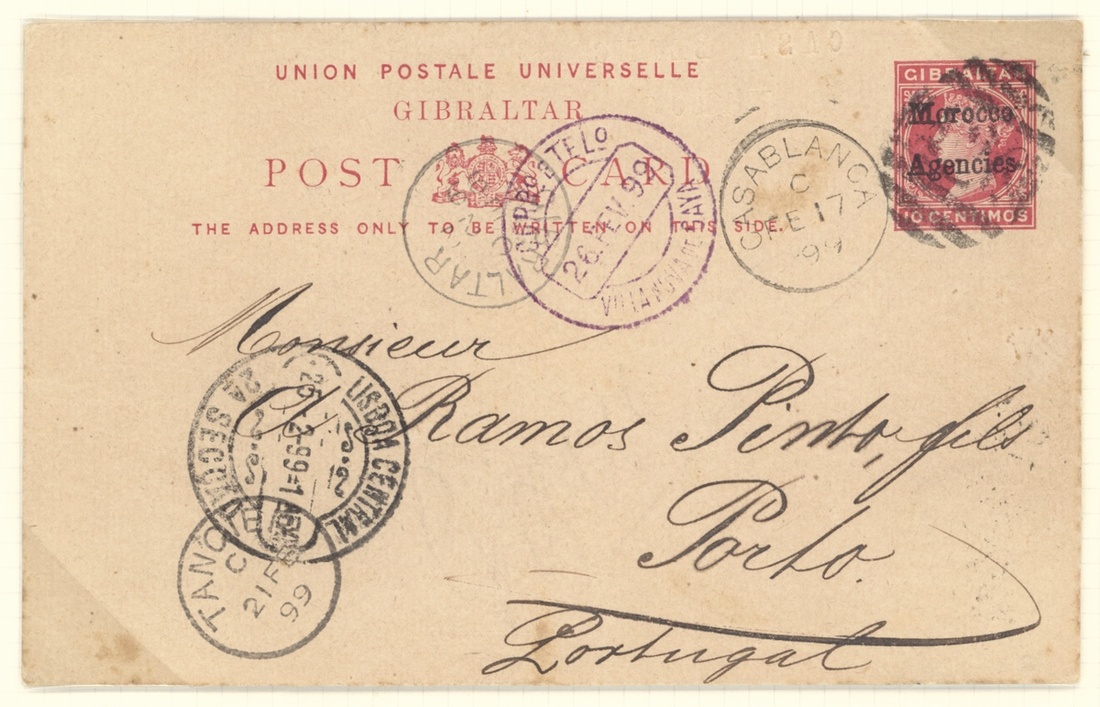 UNION POSTALE UNIVERSELLE
GIBRALTAR
POST CARD
THE ADDRESS ONLY TO BE WRITTEN ON THIS SIDE.
GIBRALTAR
Morocco
Agencies
10 CENTIMOS
CASABLANCA
C
FE 17
99
26 FEV 99
Monsieur
A Ramos Pinto, fils
Porto.
Portugal
LISBOA CENTRAL
2A SECÇÃO
C
21 FE
99